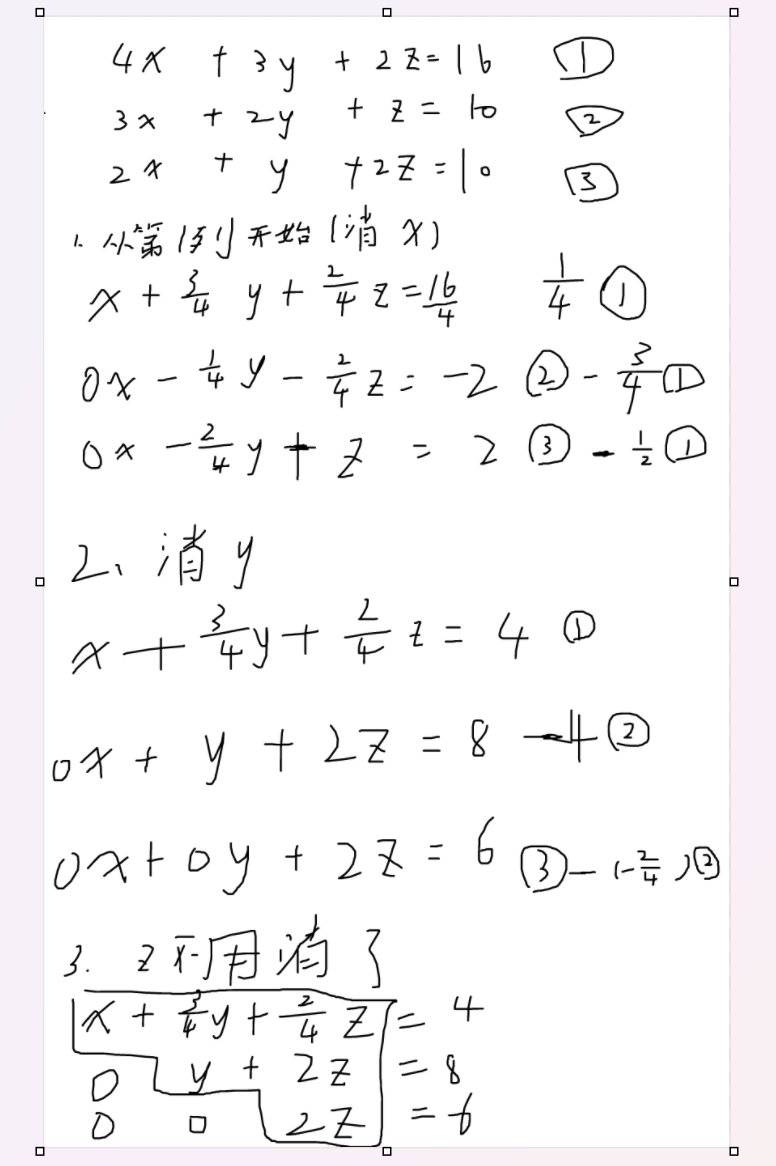 4x + 3y + 2z = 16 ①
3x + 2y + z = 10 ②
2x + y + 2z = 10 ③
1. 从第1列开始(消 x)
x + 3/4 y + 2/4 z = 16/4 1/4 ①
0x - 1/4 y - 2/4 z = -2 ② - 3/4 ①
0x - 2/4 y + z = 2 ③ - 1/2 ①
2、消 y
x + 3/4 y + 2/4 z = 4 ①
0x + y + 2z = 8 -4 ②
0x + 0y + 2z = 6 ③ - (-2/4) ②
3. z 不用消了
x + 3/4 y + 2/4 z = 4
0 y + 2z = 8
0 0 2z = 6